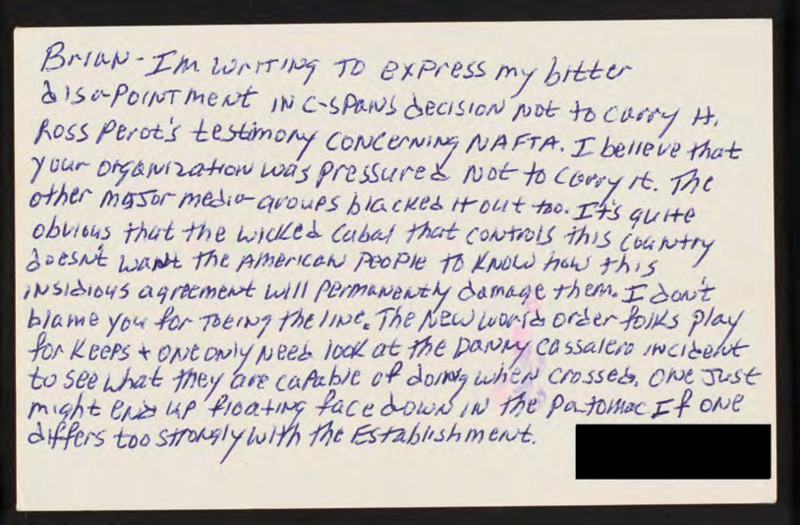 Brian - I'm writing to express my bitter
disa-pointment in C-SPANS decision not to carry H.
Ross Perot's testimony concerning NAFTA. I believe that
your organization was pressured not to carry it. The
other major media-groups blacked it out too. It's quite
obvious that the wicked cabal that controls this country
doesn't want the American people to know how this
insidious agreement will permanently damage them. I don't
blame you for toeing the line. The New World Order folks play
for keeps + one only need look at the Danny Cassalero incident
to see what they are capable of doing when crossed. One just
might end up floating face down in the Patomac if one
differs too strongly with the Establishment.